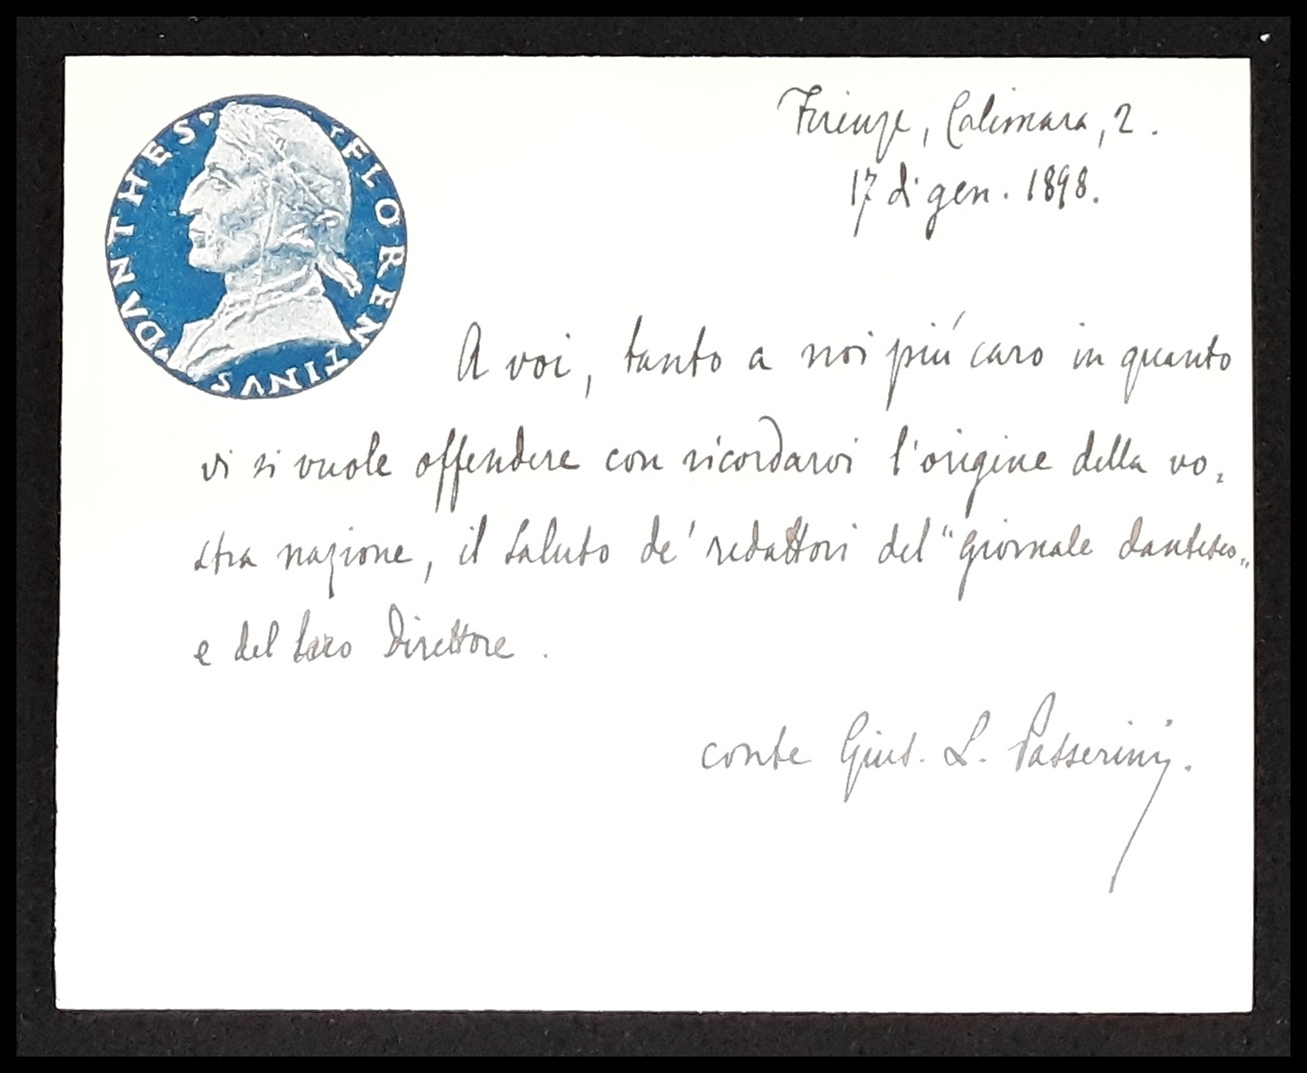 DANTHES FLORENTINVS
Firenze, Calimara, 2.
17 di gen. 1898.
A voi, tanto a noi più caro in quanto
vi si vuole offendere con ricordarvi l'origine della vo-
stra nazione, il saluto de' redattori del "Giornale dantesco"
e del loro Direttore.
conte Gius. L. Passerini.